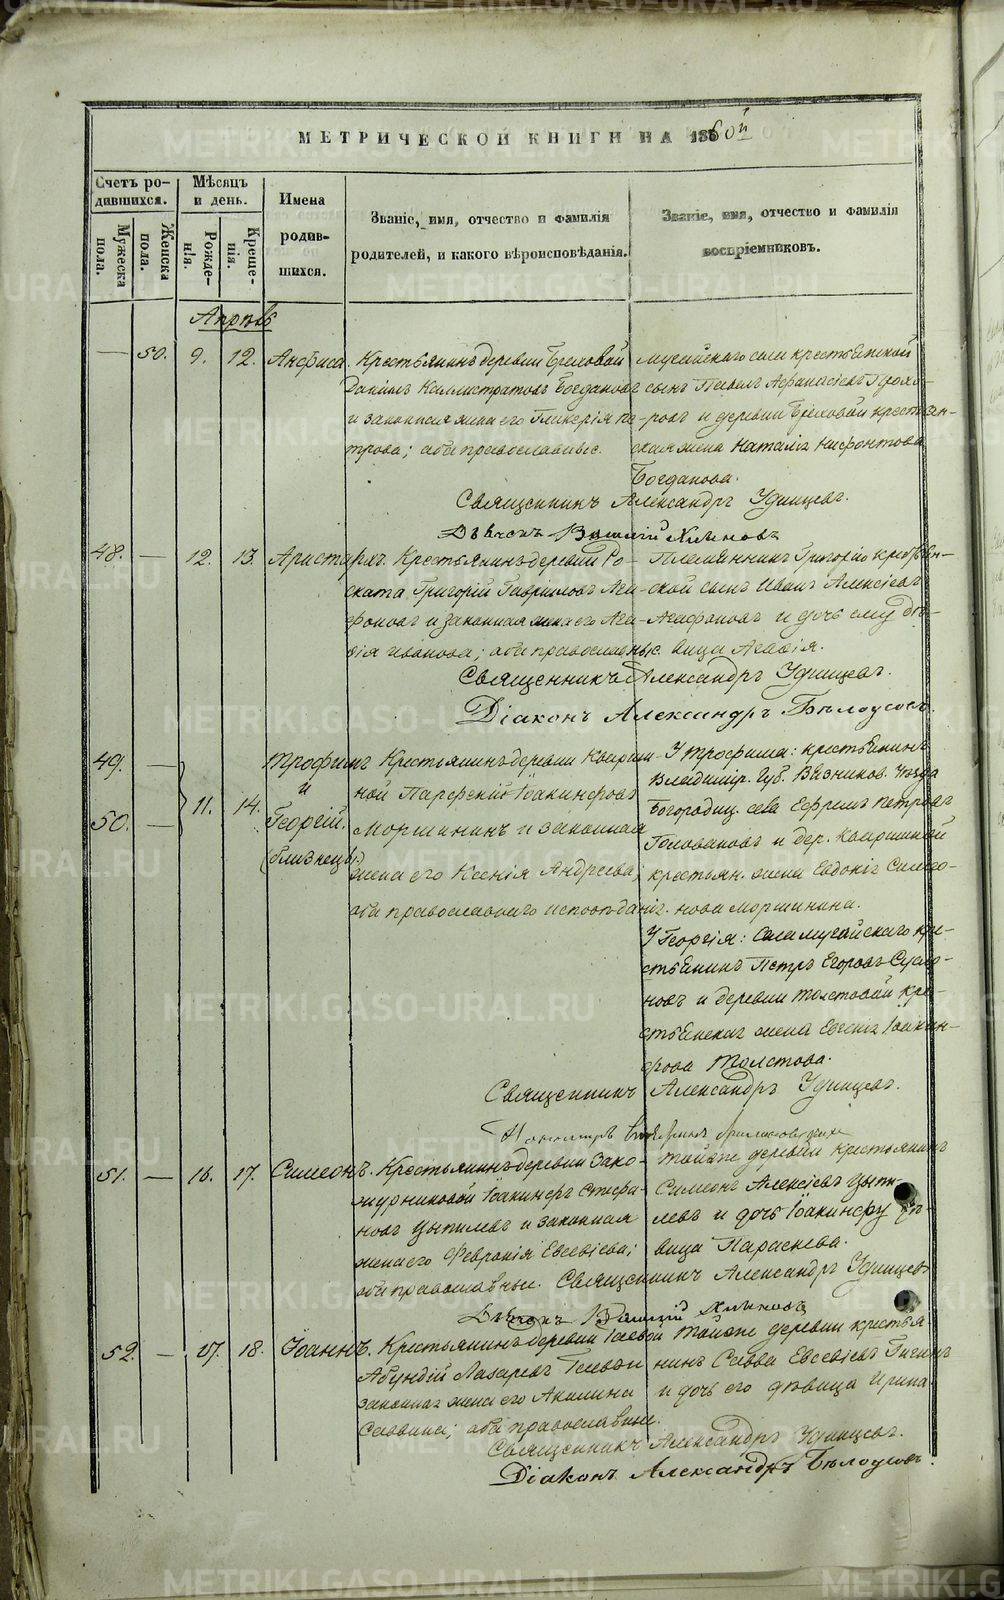 МЕТРИЧЕСКОЙ КНИГИ НА 1860й
Счетъ родившихся.
Мѣсяцъ и день.
Имена родившихся.
Званіе, имя, отчество и фамилія родителей, и какого вѣроисповѣданія.
Званіе, имя, отчество и фамилія воспріемниковъ.
Мужеска пола.
Женска пола.
Рожденія.
Крещенія.
Апрѣль
— 50. 9. 12. Анфиса. Крестьянинъ деревни Бреховой
Даніилъ Каллистратовъ Богдановъ
и законная жена его Гликерія Пе-
трова; оба православные.
Мусайскаго села крестьянской
сынъ Павелъ Афанасіевъ
и деревни Бреховой крестьян-
ская жена Наталія Нифонтова
Богданова.
Священникъ Александръ Удинцевъ.
Дьячокъ Василій Хлыновъ
48. — 12. 13. Аристархъ. Крестьянинъ деревни Ро-
ската Григорій Гавріиловъ Ага-
фоновъ и законная жена его Ага-
ѳія Иванова; оба православные.
Племянникъ Григорію крестьян-
ской сынъ Иванъ Алексіевъ
Агафоновъ и дочь ему дѣ-
вица Агаѳія.
Священникъ Александръ Удинцевъ.
Діаконъ Александръ Бѣлоусовъ.
49. —
50. —
11. 14.
Трофимъ
и
Георгій.
(близнецы)
Крестьянинъ деревни Каирши-
ной Парфеній Іоакинфовъ
Моршининъ и законная
жена его Ксенія Андреева,
оба православнаго исповѣданія.
У Трофима: крестьянинъ
Владимір. Губ. Вязников. Уѣзда
Богородиц. села Ефремъ Петровъ
Головановъ и дер. Каиршиной
крестьян. жена Евдокія Симео-
нова Моршинина.
У Георгія: Села Мусайскаго кре-
стьянинъ Петръ Егоровъ Сусло-
новъ и деревни Толстовой кре-
стьянская жена Евгенія Іоакин-
фова Толстова.
Священникъ Александръ Удинцевъ.
51. — 16. 17. Симеонъ. Крестьянинъ деревни Зако-
журниковой Іоакинфъ Стефа-
новъ Цыпилевъ и законная
жена его Февронія Евсевіева;
оба православные.
Тойже деревни крестьянинъ
Симеонъ Алексіевъ Цыпи-
левъ и дочь Іоакинфу дѣ-
вица Параскева.
Священникъ Александръ Удинцевъ
Дьячокъ Василій Хлыновъ
52. — 17. 18. Іоаннъ. Крестьянинъ деревни Гаевой
Авундій Лазаревъ Гаевъ и
законная жена его Акилина
Саввина; оба православные.
Тойже деревни крестья-
нинъ Савва Евсевіевъ
и дочь его дѣвица Ирина.
Священникъ Александръ Удинцевъ.
Діаконъ Александръ Бѣлоусовъ.
METRIKI.GASO-URAL.RU